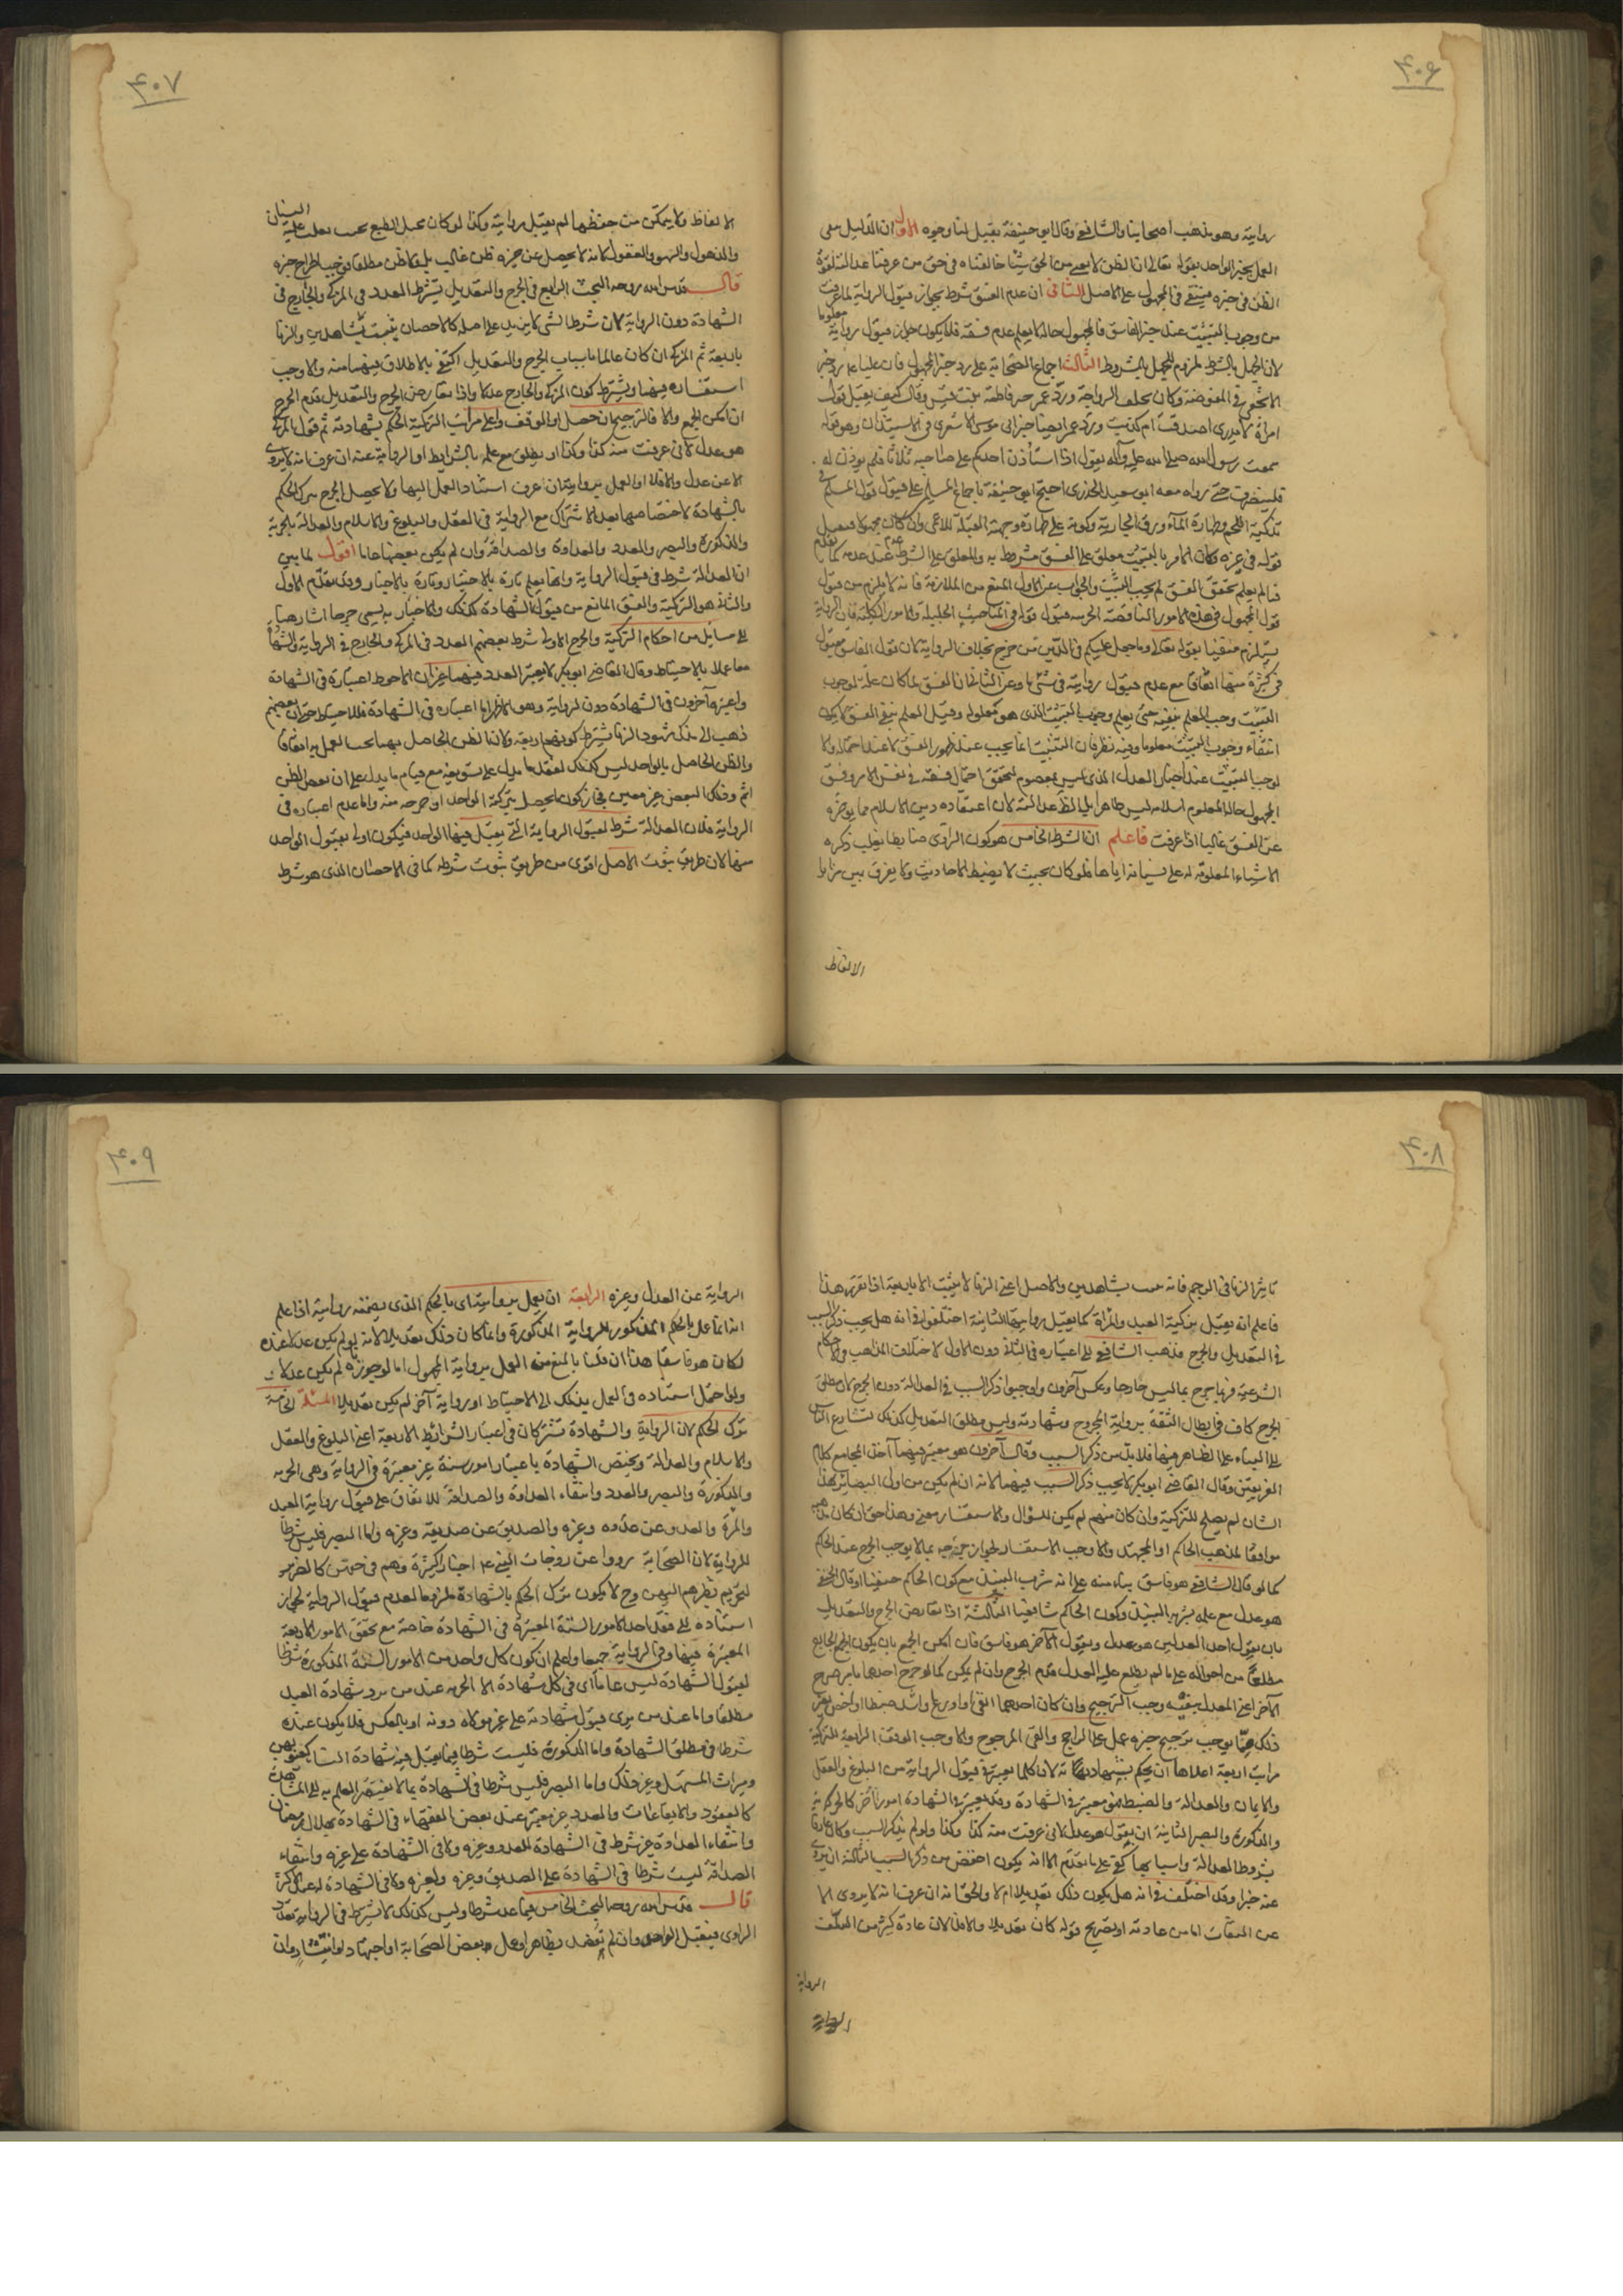 ٤٠٦
روايته وهو مذهب اصحابنا والشافعي وقال ابو حنيفة يقبل لنا وجوه الاول ان الدليل ينفي
العمل بخبر الواحد بقوله تعالى ان الظن لا يغني من الحق شيئا خالفناه في حق من عرفنا عدالته لقوة
الظن في خبره فيبقى في المجهول على الاصل الثاني ان عدم الفسق شرط بجواز قبول الرواية لما عرفت
من وجوب التثبت عند خبر الفاسق فالمجهول حاله لا يعلم عدم فسقه فلا يكون جواز قبول روايته معلوما
لان الجهل بالشرط ملزوم للجهل بالمشروط الثالث اجماع الصحابة على رد خبر المجهول فان عليا ع رد خبر
الاشجعي في المفوضة وكان يحلف الرواية ورد عمر خبر فاطمة بنت قيس وقال كيف يقبل قول
امراة لا ندري اصدقت ام كذبت ورد عمر ايضا خبر ابي موسى الاشعري في الاستيذان وهو قوله
سمعت رسول الله صلى الله عليه وآله يقول اذا استأذن احدكم على صاحبه ثلاثا فلم يوذن له
فلينصرف حتى رواه معه ابو سعيد الخدري احتج ابو حنيفة باجماع المسلمين على قبول قول المسلم في
تذكية اللحم وطهارة المآء ورق الجارية وكونه على طهارة وجهة القبلة للاعمى وان كان مجهولا فيقبل
قوله في غيره وكان الامر بالتثبت معلق على الفسق مشروط به والمعلق على الشرط عدم عند عدمه كما تقدم
فما لم يعلم تحقق الفسق لم يجب التثبت والجواب عن الاول المنع من الملازمة فانه لا يلزم من قبول
قول المجهول في هذه الامور الناقصة الجزئية قبول قوله في المناصب الجليلة والامور الكلية فان الرواية
يستلزم بقوله تعالى وما جعل عليكم في الدين من حرج بخلاف الرواية لان قول الفاسق مقبول
في كثيرة منها اتفاقا مع عدم قبول روايته في شئ ما وعن الثاني ان الفسق لما كان علة لوجوب
التثبت وجب العلم بنفيه حتى يعلم وجوب التثبت الذي هو معلوله وقيل العلم بنفي الفسق لا يكون
انتفاء وجوب التثبت معلوما وفيه نظر فان التثبت انما يجب عند ظهور الفسق لا عند احتماله والا
لوجب التثبت عند اخبار العدل الذي ليس بمعصوم لتحقق احتمال فسقه في نفس الامر وفسق
المجهول حاله المعلوم اسلامه ليس ظاهرا بل الظ عدالته لان اعتقاده دين الاسلام مما يوخره
عن الفسق غالبا اذا عرفت فاعلم ان الشرط الخامس هو كون الراوي ضابطا يغلب ذكره
الاشياء المعلومة له على نسيانه اياها فلو كان بحيث لا يضبط الاحاديث ولا يفرق بين مزايا
الالفاظ
٤٠٧
الالفاظ ولا يتمكن من حفظها لم يقبل روايته وكذا لو كان مختل الطبع بحيث يغلب عليه النسيان
والذهول والسهو والغفول لانه لا يحصل عن خبره ظن غالب بل ولا ظن مطلقا فوجب اطراح خبره
قال قدس الله روحه البحث الرابع في الجرح والتعديل يشترط العدد في المزكي والجارح في
الشهادة دون الرواية لان شرط الشئ لا يزيد على اصله كالاحصان يثبت بشاهدين والزنا
باربعة ثم المزكي ان كان عالما باسباب الجرح والتعديل اكتفي بالاطلاق فيهما منه والا وجب
استفساره فيهما ويشترط كون المزكي والجارح عدلا واذا تعارض الجرح والتعديل قدم الجرح
ان امكن الجمع والا فالترجيح ان حصل او الوقف واعلى مراتب التزكية الحكم بشهادته ثم قول المزكي
هو عدل لاني عرفت منه كذا وكذا او يطلق مع علمه بالشرايط او الرواية عنه ان عرف انه لا يروي
الا عن عدل والا فلا او العمل بروايته ان عرف استناد العمل اليها ولا يحصل الجرح بترك الحكم
بالشهادة لاختصاصها بعد الاشتراك مع الرواية في العقل والبلوغ والاسلام والعدالة بالحرية
والذكورة والبصر والعدد والعداوة والصداقة وان لم يكن بعضها عاما اقول لما بين
ان العدالة شرط في قبول الرواية وانها يعلم تارة بالاختبار وتارة بالاخبار وقد تقدم الاول
والثاني هو التزكية والفسق المانع من قبول الشهادة كذلك والاخبار به يسمى جرحا اشار هنا
الى مسايل من احكام التزكية والجرح الاولى شرط بعضهم العدد في المزكي والجارح في الرواية والشهادة
معا عملا بالاحتياط وقال القاضي ابو بكر لا يعتبر العدد فيهما غير ان الاحوط اعتباره في الشهادة
واعتبره آخرون في الشهادة دون الرواية وهو الاظهر اما اعتباره في الشهادة فللاحتياط حتى ان بعضهم
ذهب الى مذكي شهود الزنا يشترط كونهم اربعة ولان الظن الحاصل بهما يجب العمل به اتفاقا
والظن الحاصل بالواحد ليس كذلك لفقد ما يدل على تسويغه مع قيام ما يدل على ان بعض الظن
اثم وذلك البعض غير معين فجاز كون ما يحصل بتزكية الواحد او جرحه منه واما عدم اعتباره في
الرواية فلان العدالة شرط لقبول الرواية التي يقبل فيها الواحد فيكون اولى بقبول الواحد
منها لان طريق ثبوت الاصل اقوى من طريق ثبوت شرطه كما في الاحصان الذي هو شرط
٤٠٨
تاثير الزنا في الرجم فانه يثبت بشاهدين والاصل اعني الزنا لا يثبت الا باربعة اذا تقرر هذا
فاعلم انه يقبل تزكية العبد والمراة كما يقبل روايتهما الثانية اختلفوا في انه هل يجب ذكر السبب
في التعديل والجرح فذهب الشافعي الى اعتباره في الثاني دون الاول لاختلاف المذاهب في الاحكام
الشرعية فربما جرح بما ليس جارحا وعكس آخرون واوجبوا ذكر السبب في العدالة دون الجرح لان مطلق
الجرح كاف في ابطال الثقة برواية المجروح وشهادته وليس مطلق التعديل كذلك لتسارع الناس
الى البناء على الظاهر فيها فلا بد من ذكر السبب وقال آخرون هو معتبر فيهما آخذا بمجامع كلام
الفريقين وقال القاضي ابو بكر لا يجب ذكر السبب فيهما لانه ان لم يكن من اولى البصائر بهذا
الشان لم يصلح للتزكية وان كان منهم لم يكن للسؤال والاستفسار معنى وهذا حق ان كان مذهبه
موافقا لمذهب الحاكم او المجتهد والا وجب الاستفسار لجواز جرحه بما لا يوجب الجرح عند الحاكم
كما لو قال الشافعي هو فاسق بناء منه على انه شرب النبيذ مع كون الحاكم حنفيا او قال الحنفي
هو عدل مع علمه بشربه النبيذ وكون الحاكم شافعيا الثالثة اذا تعارض الجرح والتعديل
بان يقول احد العدلين هو عدل ويقول الآخر هو فاسق فان امكن الجمع بان يكون الجارح
مطلعا من احواله على ما لم يطلع عليه المعدل قدم الجرح وان لم يكن كما لو جرح احدهما بامر صرح
الآخر اعني المعدل بنفيه وجب الترجيح فان كان احدهما اتقى او اورع واشد ضبطا او اخص بغير
ذلك مما يوجب ترجيح خبره عمل على الراجح والغي المرجوح والا وجب الوقف الرابعة للتزكية
مراتب اربعة اعلاها ان يحكم بشهادته لان كلما يعتبر في قبول الرواية من البلوغ والعقل
والايمان والعدالة والضبط فهو معتبر في الشهادة وقد يعتبر في الشهادة امور اخر كالحرية
والذكورة والبصر الثانية ان يقول هو عدل لاني عرفت منه كذا وكذا ولو لم يذكر السبب وكان عارفا
بشروط العدالة واسبابها كفى على ما تقدم الا انه يكون اخفض من ذكر السبب الثالثة ان يروي
عنه خبرا وقد اختلف في انه هل يكون ذلك تعديلا ام لا والحق انه ان عرف انه لا يروي الا
عن الثقات اما من عادته او بصريح قوله كان تعديلا والا فلا لان عادة كثير من السلف
الرواية
٤٠٩
الرواية عن العدل وغيره الرابعة ان يعمل بروايته اي بالحكم الذي يتضمنه روايته اذا علم
انه انما عمل بالحكم المذكور للرواية المذكورة وانما كان ذلك تعديلا لانه لو لم يكن عدلا عنده
لكان هو فاسقا هذا ان قلنا بالمنع من العمل برواية المجهول اما لو جوزناه لم يكن عدلا
ولو احتمل استناده في العمل بذلك الى الاحتياط او رواية آخر لم يكن تعديلا المسئلة الخامسة
ترك الحكم لان الرواية والشهادة تشتركان في اعتبار الشرائط الاربعة اعني البلوغ والعقل
والاسلام والعدالة ويختص الشهادة باعتبار امور ستة غير معتبرة في الرواية وهي الحرية
والذكورة والبصر والعدد وانتفاء العداوة والصداقة للاتفاق على قبول رواية العبد
والمرة والعدو عن عدوه وغيره والصديق عن صديقه وغيره واما البصر فليس شرطا
للرواية لان الصحابة رووا عن زوجات النبي ع اخبارا كثيرة وهم في حقهن كالضرير
لتحريم نظرهم اليهن وح لا يكون ترك الحكم بالشهادة ملزوما لعدم قبول الرواية لجواز
استناده الى فقد احد الامور الستة المعتبرة في الشهادة خاصة مع تحقق الامور الاربعة
المعتبرة فيها وفي الرواية جميعا واعلم ان كون كل واحد من الامور الستة المذكورة شرطا
لقبول الشهادة ليس عاما اي في كل شهادة الا الحرية عند من يرد شهادة العبد
مطلقا واما عند من يرى قبول شهادته على غير مولاه دونه او بالعكس فلا يكون عنده
شرطا في مطلق الشهادة واما الذكورة فليست شرطا فيما يقبل فيه شهادة النساء كعيوبهن
وميراث المستهل وغير ذلك واما البصر فليس شرطا في الشهادة بما لا يفتقر العلم به الى المشاهدة
كالعقود والايقاعات والعدد غير معتبر عند بعض الفقهاء في الشهادة بهلال رمضان
وانتفاء العداوة غير شرط في الشهادة للعدو وغيره ولا في الشهادة على غيره وانتفاء
الصداقة ليست شرطا في الشهادة على الصديق وغيره ولغيره ولا في الشهادة له عند الاكثر
قال قدس الله روحه البحث الخامس فيما عد شرطا وليس كذلك لا يشترط في الرواية تعدد
الراوي فيقبل الواحد وان لم يعضد بظاهر او عمل بعض الصحابة او اجتهاد او انتشار وان